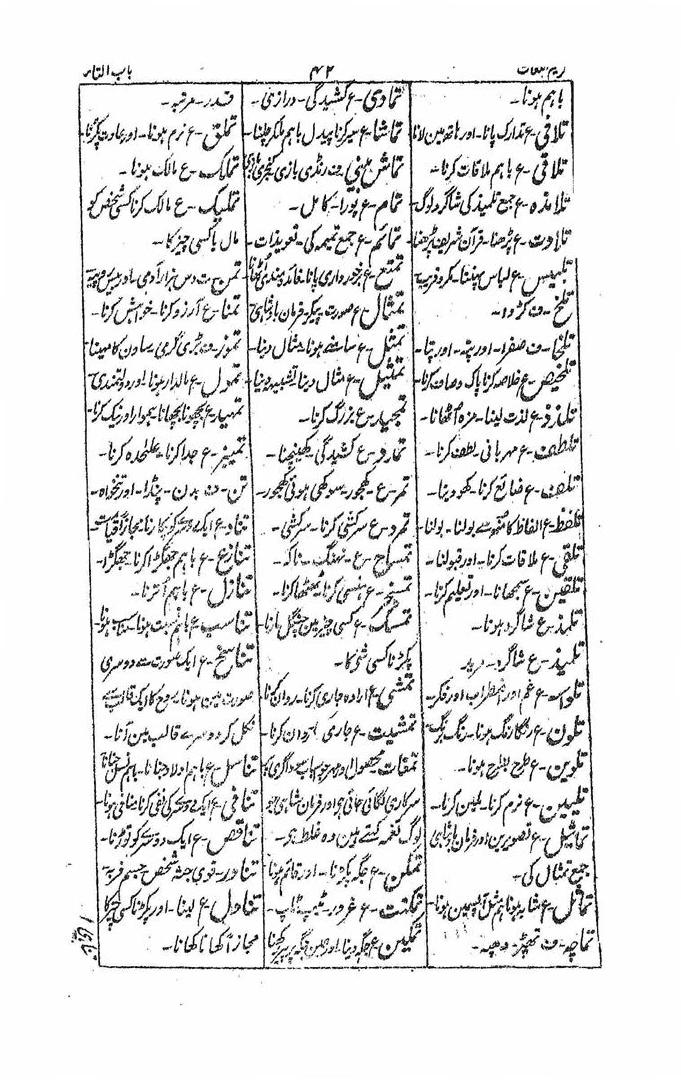 کریم اللغات ۴۲ باب التاء
باہم ہونا۔
تلافی۔ ع تدارک پانا۔ اور ہاتھ مین لانا
تلاقی۔ ع باہم ملاقات کرنا۔
تلامذہ۔ ع جمع تلمیذ کی شاگرد لوگ۔
تلاوت۔ ع پڑھنا۔ قرآن شریف پڑھنا
تلبیس۔ ع لباس پہننا۔ مکر و فریب
تلخ۔ ف کڑوا۔
تلخا۔ ف صفرا۔ اور پتہ۔ اور پتا۔
تلخیص۔ ع خلاصہ کرنا پاک و صاف کرنا۔
تلذذ۔ ع لذت لینا۔ مزہ اُٹھانا۔
تلطف۔ ع مہربانی۔ لطف کرنا۔
تلف۔ ع ضائع کرنا۔ کھو دینا۔
تلفظ۔ ع الفاظ کا منھ سے بولنا۔ بولنا
تلقی۔ ع ملاقات کرنا۔ اور قبولنا۔
تلقین۔ ع سمجھانا۔ اور تعلیم کرنا۔
تلمذ۔ ع شاگرد ہونا۔
تلمیذ۔ ع شاگرد۔ مرید
تلواسہ۔ ف غم اور اضطراب اور فکر۔
تلون۔ ع رنگا رنگ ہونا۔ رنگ برنگ
تلوین۔ ع طرح بطرح ہونا۔
تلیین۔ ع نرم کرنا۔ لین کرنا۔
تماثیل۔ ع تصویرین اور فرمان بادشاہی
جمع تمثال کی۔
تماثل۔ ع مشابہ ہونا ہم مثل آپسمین ہونا۔
تماچہ۔ ف تھپڑ۔ دھپہ۔
تمادی۔ ع کشیدگی۔ درازی۔
تماشا۔ ع سیر کرنا پیدل باہم ملکر چلنا۔
تماش بینی۔ ف رنڈی بازی کنجری بازی
تمام۔ ع پورا۔ کامل۔
تمائم۔ ع جمع تمیمہ کی۔ تعویذات۔
تمتع۔ ع برخورداری پانا۔ فائدہ مندی اُٹھانا
تمثال۔ ع صورت پیکر فرمان بادشاہی
تمثل۔ ع سامنے ہونا۔ مثال دینا۔
تمثیل۔ ع مثال دینا تشبیہ دینا
تمجید۔ ع بزرگ کرنا۔
تمدد۔ ع کشیدگی۔ کھینچنا۔
تمر۔ ع کھجور۔ سوکھی ہوئی کھجور۔
تمرد۔ ع سرکشی کرنا۔ سرکشی۔
تمساح۔ ع نہنگ۔ ناکہ۔
تمسخر۔ ع ہنسی کرنا ٹھٹھا کرنا۔
تمسک۔ ع کسی چیز مین چنگل مارنا
پکڑنا کسی شی کا۔
تمشی۔ ع ارادہ جاری کرنا۔ روان کرنا
تمشیت۔ ع جاری روان کرنا۔
تمغات محصول
سرکاری لگائی جاتی ہی اور فرمان شاہی جو
لوگ تغمہ کہتے ہین وہ غلط ہی۔
تمکن۔ ع جگہ پکڑنا۔ اور قائم ہونا
تمکنت۔ ع غرور۔ ٹیپ ٹاپ۔
تمکین۔ ع جگہ دینا۔ اور جگہ پر
قدر۔ مرتبہ۔
تملق۔ ع نرم ہونا۔ اور عادت پکڑنا۔
تملک۔ ع مالک ہونا۔
تملیک۔ ع مالک کرنا کسی شخص کو
مال یا کسی چیز کا۔
تمن۔ ت دس ہزار آدمی۔ اور بیس روپیہ
تمنا۔ ع آرزو کرنا۔ خواہش کرنا۔
تموز۔ ف بڑی گرمی۔ ساون کا مہینا
تمول۔ ع مالدار ہونا اور دولتمندی
تمہید۔ ع بچھونا بچھانا ہموار اور نیک کرنا۔
تمیز۔ ع جدا کرنا۔ علٰحدہ کرنا۔
تن۔ ف بدن۔ پنڈا۔ اور تنخواہ۔
تناد۔ ع ایک دوسرے کو پکارنا۔ مجازاً قیامت
تنازع۔ ع باہم جھگڑا کرنا۔ جھگڑا۔
تنازل۔ ع باہم اُترنا۔
تناسب۔ ع باہم نسبت ہونا۔ ہونا
تناسخ۔ ع ایک صورت سے دوسری
صورت مین ہونا۔ روح کا ایک قالب سے
نکل کر دوسرے قالب مین آنا۔
تناسل۔ ع باہم اولاد جننا۔
تنافی۔ ع ایک دوسرے کی نفی کرنا منافی ہونا۔
تناقض۔ ع ایک دوسرے کو توڑنا۔
تناور۔ قوی جثہ شخص۔ جسیم فربہ
تناول۔ ع لینا۔ اور پکڑنا کسی چیز کا
مجازاً کھانا کھانا۔